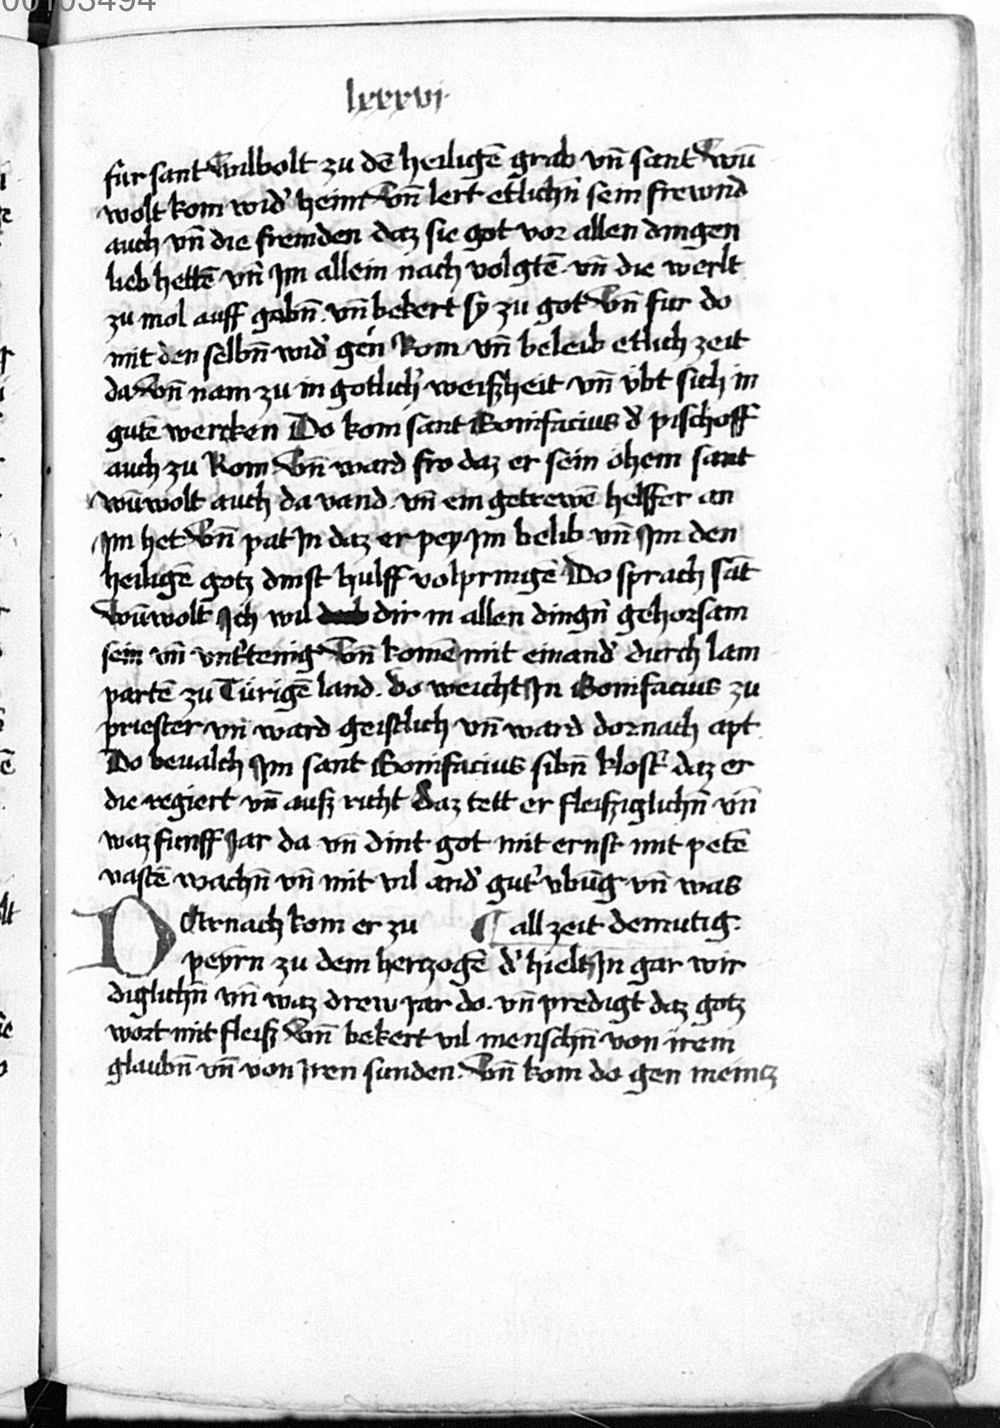 00103494
lxxxvi
fur sant Wilbolt zu dē heiligē grab vn̄ sant Wūn
wolt kom wid' heim Vn̄ lert etlichn̄ sein frewnd
auch vn̄ die fremden daz sie got vor allen dingen
lieb hettē vn̄ Jm allein nach volgtē vn̄ die werlt
zu mol auff gabn̄. vn̄ bekert sy zu got Vn̄ fur do
mit den selbn̄ wid' gen Rom vn̄ beleib etlich zeit
da Vn̄ nam zu in gotlich' weißheit vn̄ vbt sich in
gutē wercken Do kom sant Bonifacius d' pischoff
auch zu Rom Vn̄ ward fro daz er sein ohem sant
wūwolt auch da vand. vn̄ ein getrewē helffer an
Jm het Vn̄ pat Jn daz er pey Jm belib vn̄ Jm den
heiligē gotz dinst hulff volpringē Do sprach sāt
Wūwolt Jch wil dir in allen dingn̄ gehorsam
sein vn̄ vnt'tenig Vn̄ komē mit einand' durch lam
partē zu Türigē land. do weicht Jn Bonifacius zu
priester vn̄ ward geistlich vn̄ ward dornach apt
Do bevalch Jm sant Bonifacius sibn̄ klost' daz er
die regiert vn̄ auß richt daz tett er fleißiglichn̄ vn̄
waz funff Jar da vn̄ dint got mit ernst mit petē
vastē wachn̄ vn̄ mit vil and' gut' vbūg vn̄ was
Darnach kom er zu ¶ all zeit demutig.
peyrn zu dem hertzogē d' hielt Jn gar wir
diglichn̄ vn̄ waz drew jar do. vn̄ predigt daz gotz
wort mit fleiß Vn̄ bekert vil menschn̄ von irem
glaubn̄ vn̄ von Jren sunden. Vn̄ kom do gen meincz